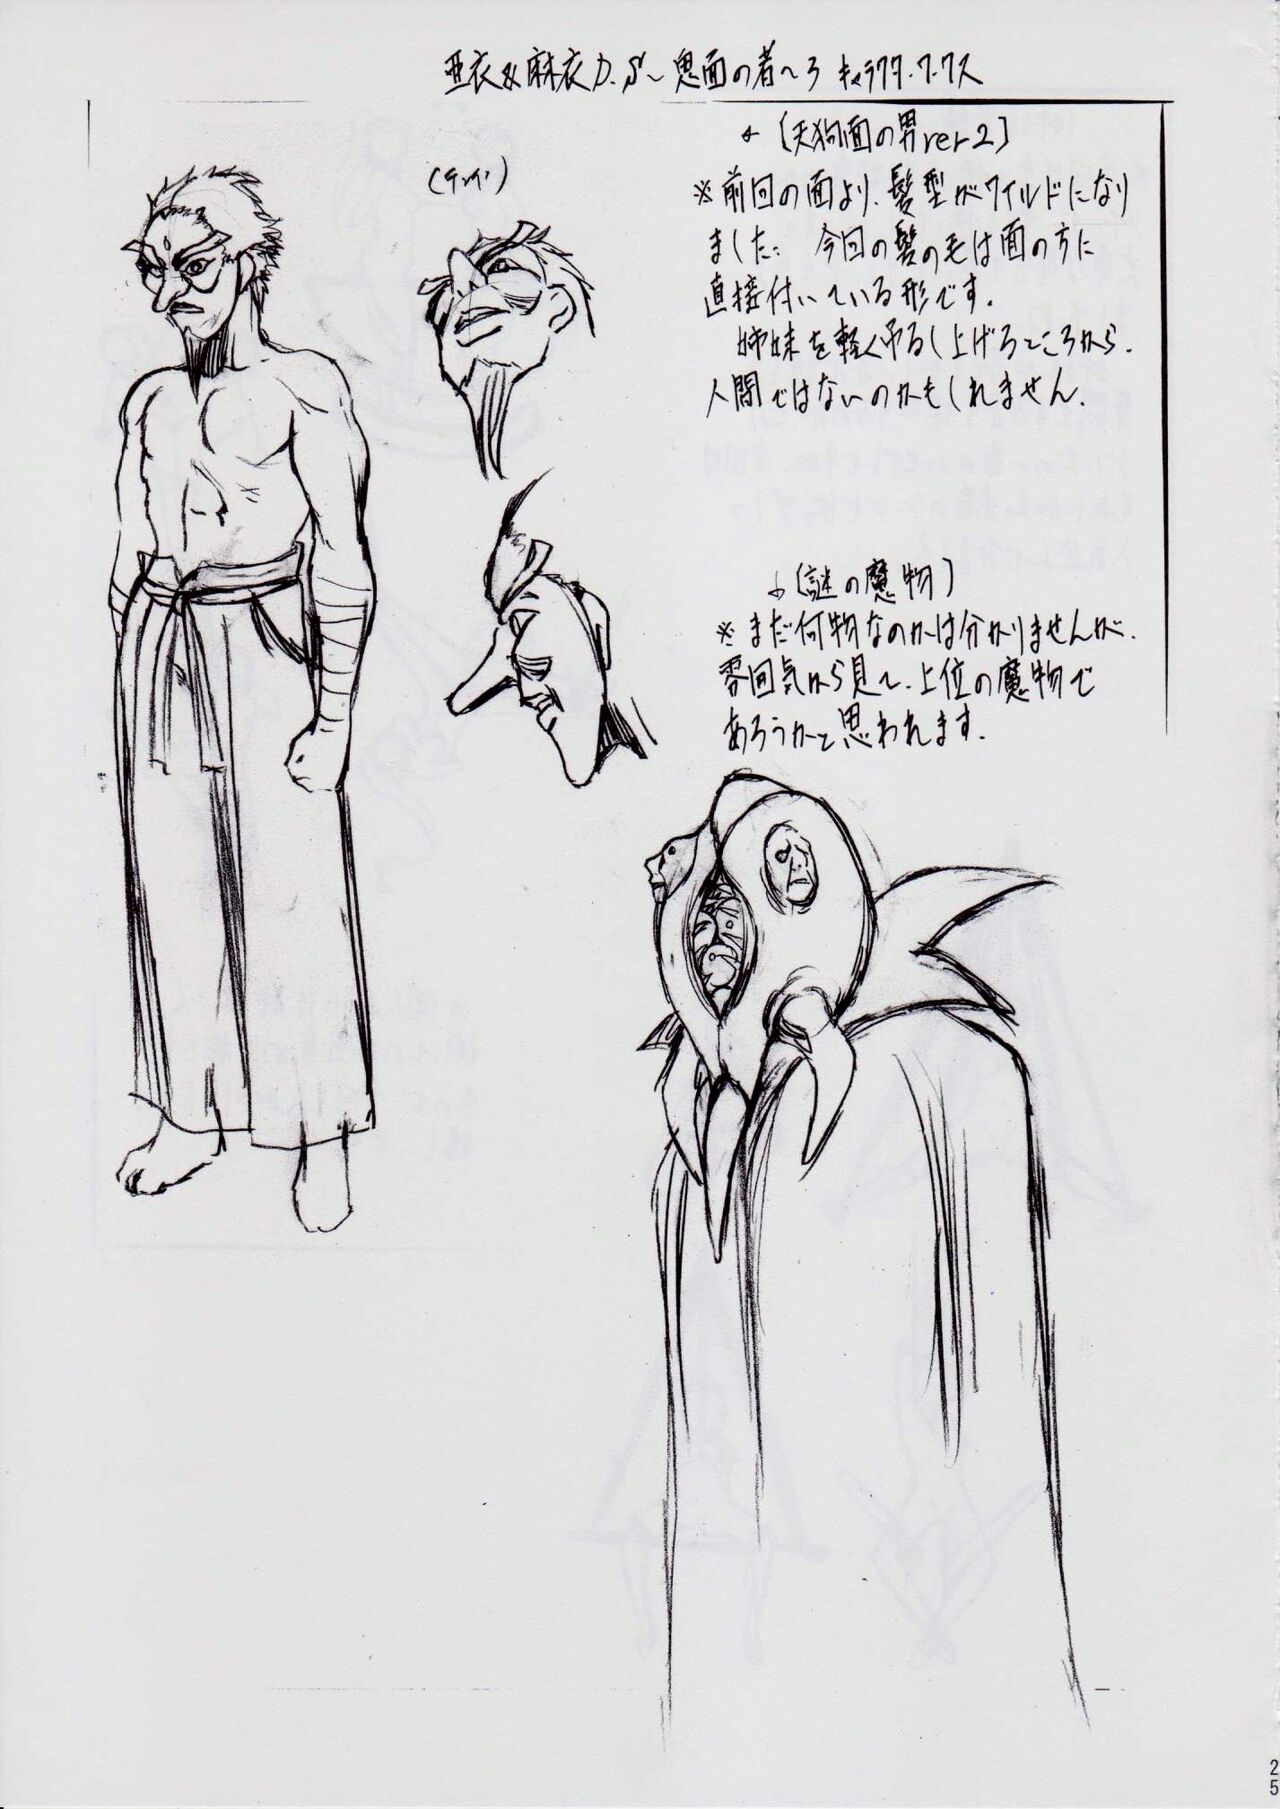 亜衣&麻衣 D.S～鬼面の者～3 キャラクターワークス
← [天狗面の男 ver2]
※前回の面より、髪型がワイルドになり
ました。今回の髪の毛は面の方に
直接付いている形です。
姉妹を軽く吊るし上げるところから、
人間ではないのかもしれません。
↓ [謎の魔物]
※まだ何物なのかは分かりませんが、
雰囲気から見て、上位の魔物で
あろうかと思われます。
25